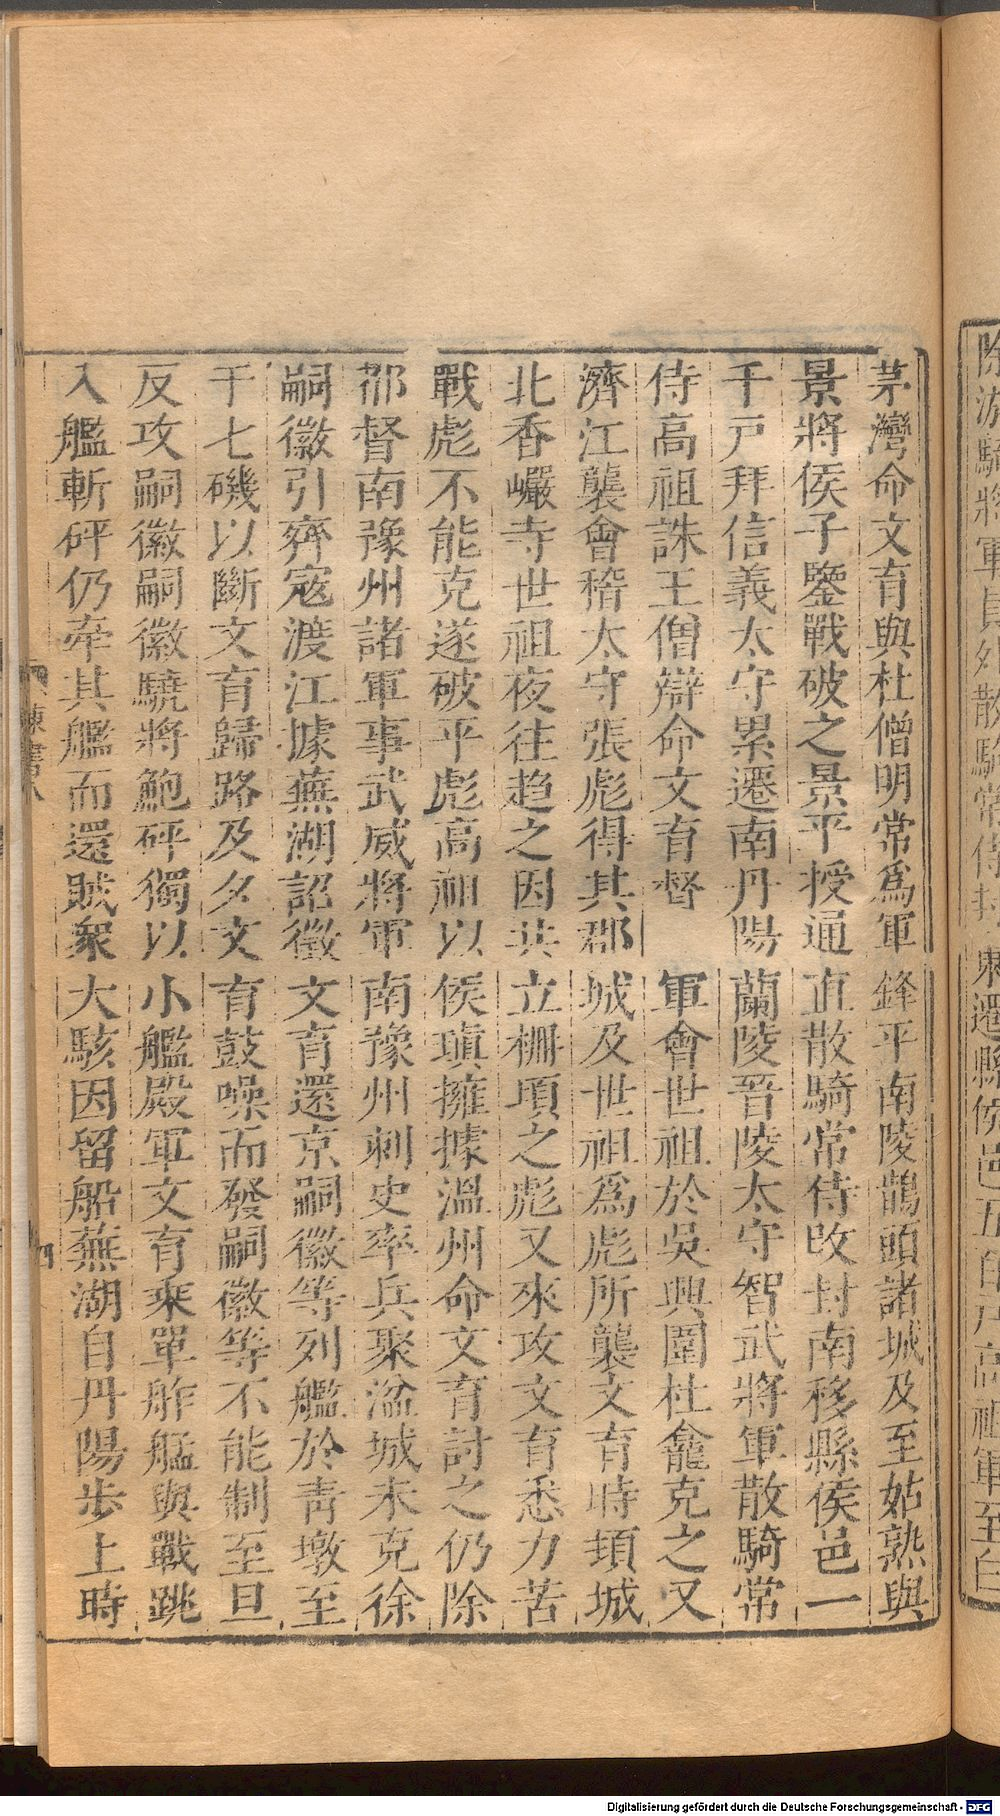 茅灣命文育與杜僧明常爲軍鋒平南陵鵲頭諸城及至姑熟與
景將侯子鑒戰破之景平授通直散騎常侍改封南移縣侯邑一
千戸拜信義太守累遷南丹陽蘭陵晉陵太守智武將軍散騎常
侍高祖誅王僧辯命文育督軍會世祖於吳興圍杜龕克之又
濟江襲會稽太守張彪得其郡城及世祖爲彪所襲文育時頓城
北香巖寺世祖夜往趋之因共立柵頃之彪又來攻文育悉力苦
戰彪不能克遂破平彪高祖以侯瑱擁據溫州命文育討之仍除
都督南豫州諸軍事武威將軍南豫州刺史率兵聚湓城未克徐
嗣徽引齊寇渡江據蕪湖詔徵文育還京嗣徽等列艦於青墩至
于七磯以斷文育歸路及夕文育鼓噪而發嗣徽等不能制至旦
反攻嗣徽嗣徽驍將鮑砰獨以小艦殿軍文育乘單舴艋與戰跳
入艦斬砰仍牽其艦而還賊衆大駭因留船蕪湖自丹陽步上時
陳書八
Digitalisierung gefördert durch die Deutsche Forschungsgemeinschaft - DFG